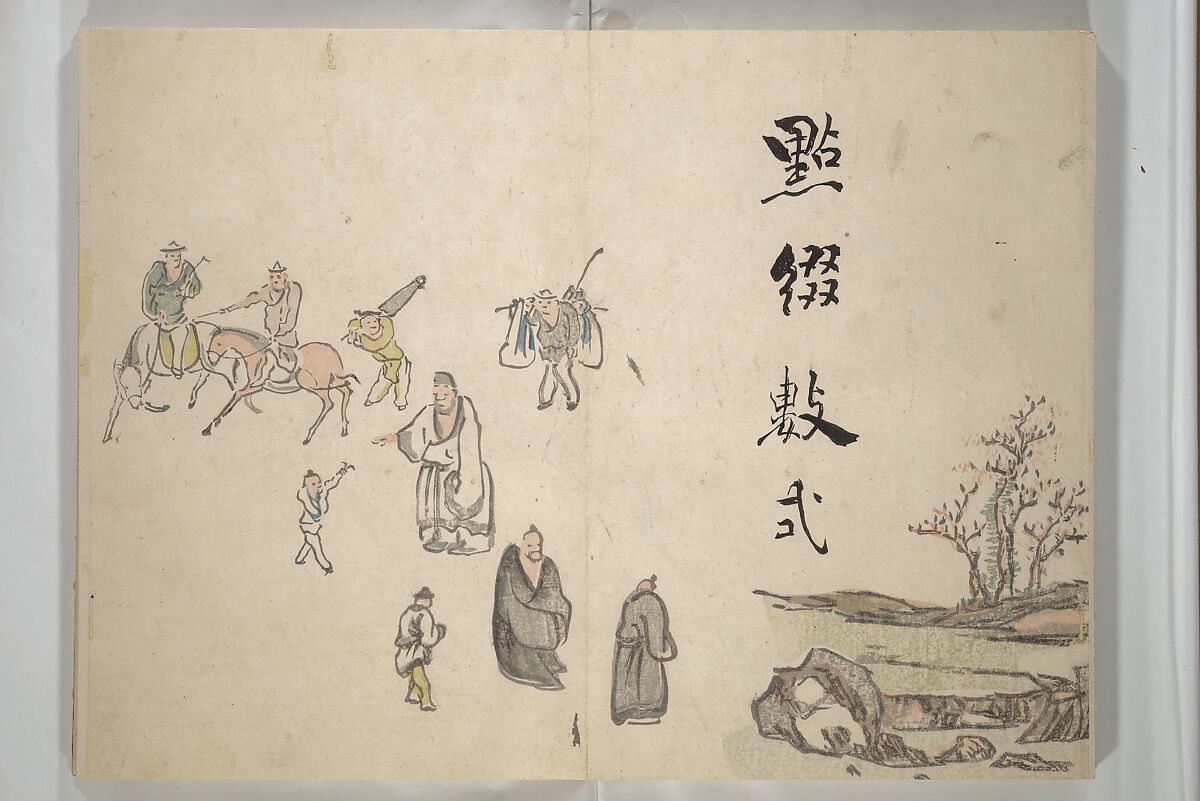 點綴數式